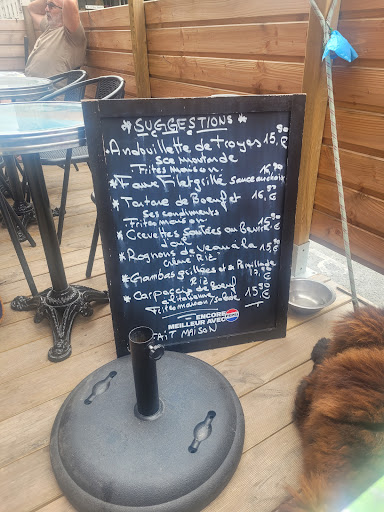 * SUGGESTIONS *
* Andouillette de Troyes 15,90 €
sce moutarde
Frites maison
* Faux Filet grillé sauce au choix 16,90
* Tartare de Boeuf et 16,90 €
Ses condiments
Frites maison
* Crevettes sautées au Beurre 16,90
d'ail
* Rognons de veau à la 15,90 €
Crème Riz
* Gambas grillées et sa Persillade 17,90 €
Riz
* Carpaccio de Boeuf 15,90 €
à l'italienne
Frites maison/salade
ENCORE
MEILLEUR AVEC
PEPSI
FAIT MAISON